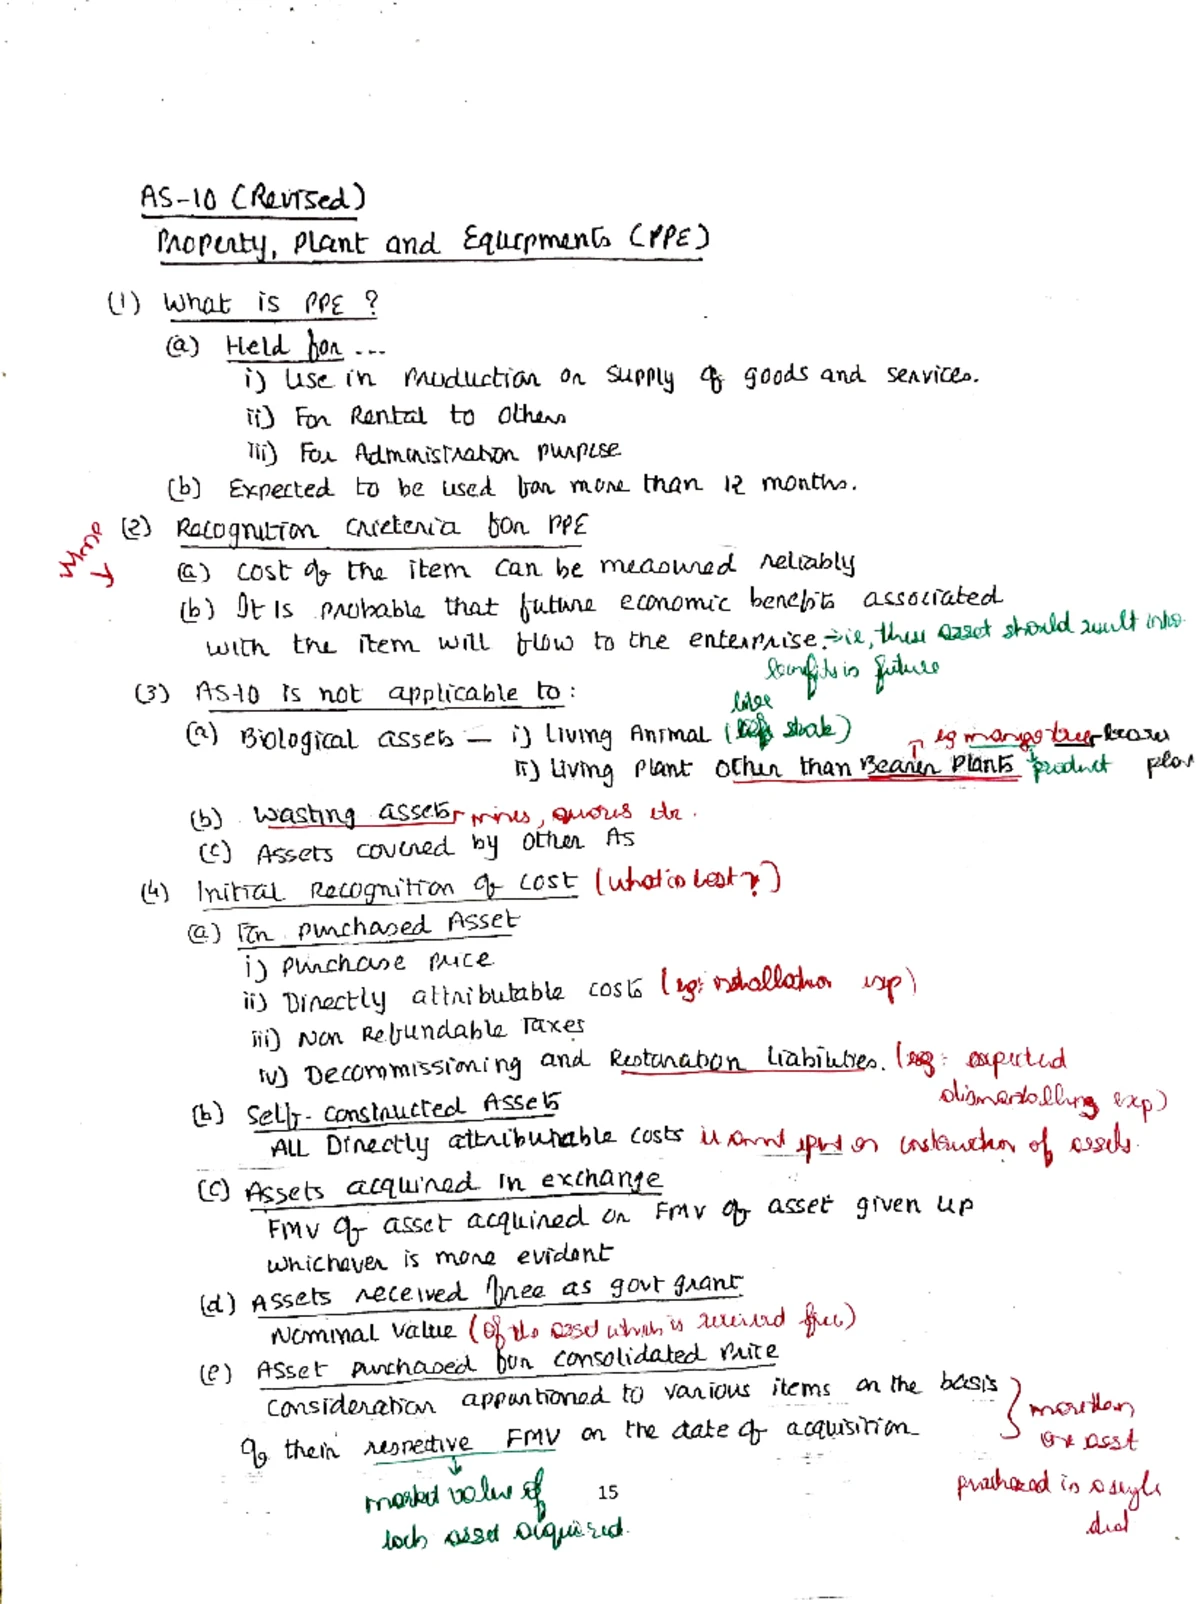 AS-10 (Revised)
Property, Plant and Equipments (PPE)
(1) What is PPE ?
(a) Held for ...
i) Use in Production or Supply of goods and services.
ii) For Rental to Others
iii) For Administration purpose
(b) Expected to be used for more than 12 months.
(2) Recognition Crieteria for PPE
(a) Cost of the item can be measured reliably
(b) It Is probable that future economic benefits associated
with the item will flow to the enterprise. → ie, these asset should result into
benefits in future
(3) AS-10 is not applicable to :
(a) Biological assets — i) Living Animal (like stock)
ii) Living Plant Other than Bearer Plants
eg mango tree bears
product
(b) Wasting assets → mines, quores etc.
(c) Assets covered by Other AS
(4) Initial Recognition of Cost (What is Cost ?)
(a) For Purchased Asset
i) Purchase Price
ii) Directly attributable costs (eg: installation exp)
iii) Non Refundable Taxes
iv) Decommissioning and Restoration Liabilities. (eg: expected
dismantolling exp)
(b) Self-constructed Assets
ALL Directly attributable costs on construction of assets.
(c) Assets acquired in exchange
FMV of asset acquired or FMV of asset given up
whichever is more evident
(d) Assets received free as govt grant
Nominal Value (of the asset which is received free)
(e) Asset purchased for consolidated Price
Consideration apportioned to various items on the basis
of their respective FMV on the date of acquisition
more than
one asst
purchased in a single
deal
market value of
each asset acquired.
15